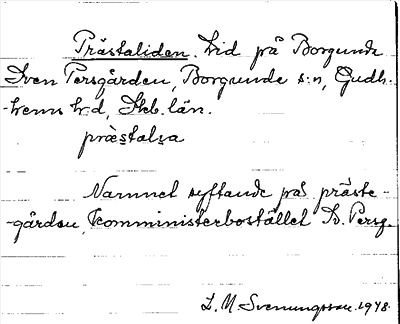 Prästaliden. Lid på Borgunda
Sven Persgården, Borgunda s:n, Gudh-
hems h:d, Skb. län.
præstalɩa
Namnet syftande på präste-
gården, komministerbostället Sv. Persg.
L. M. Svenungsson. 1948.